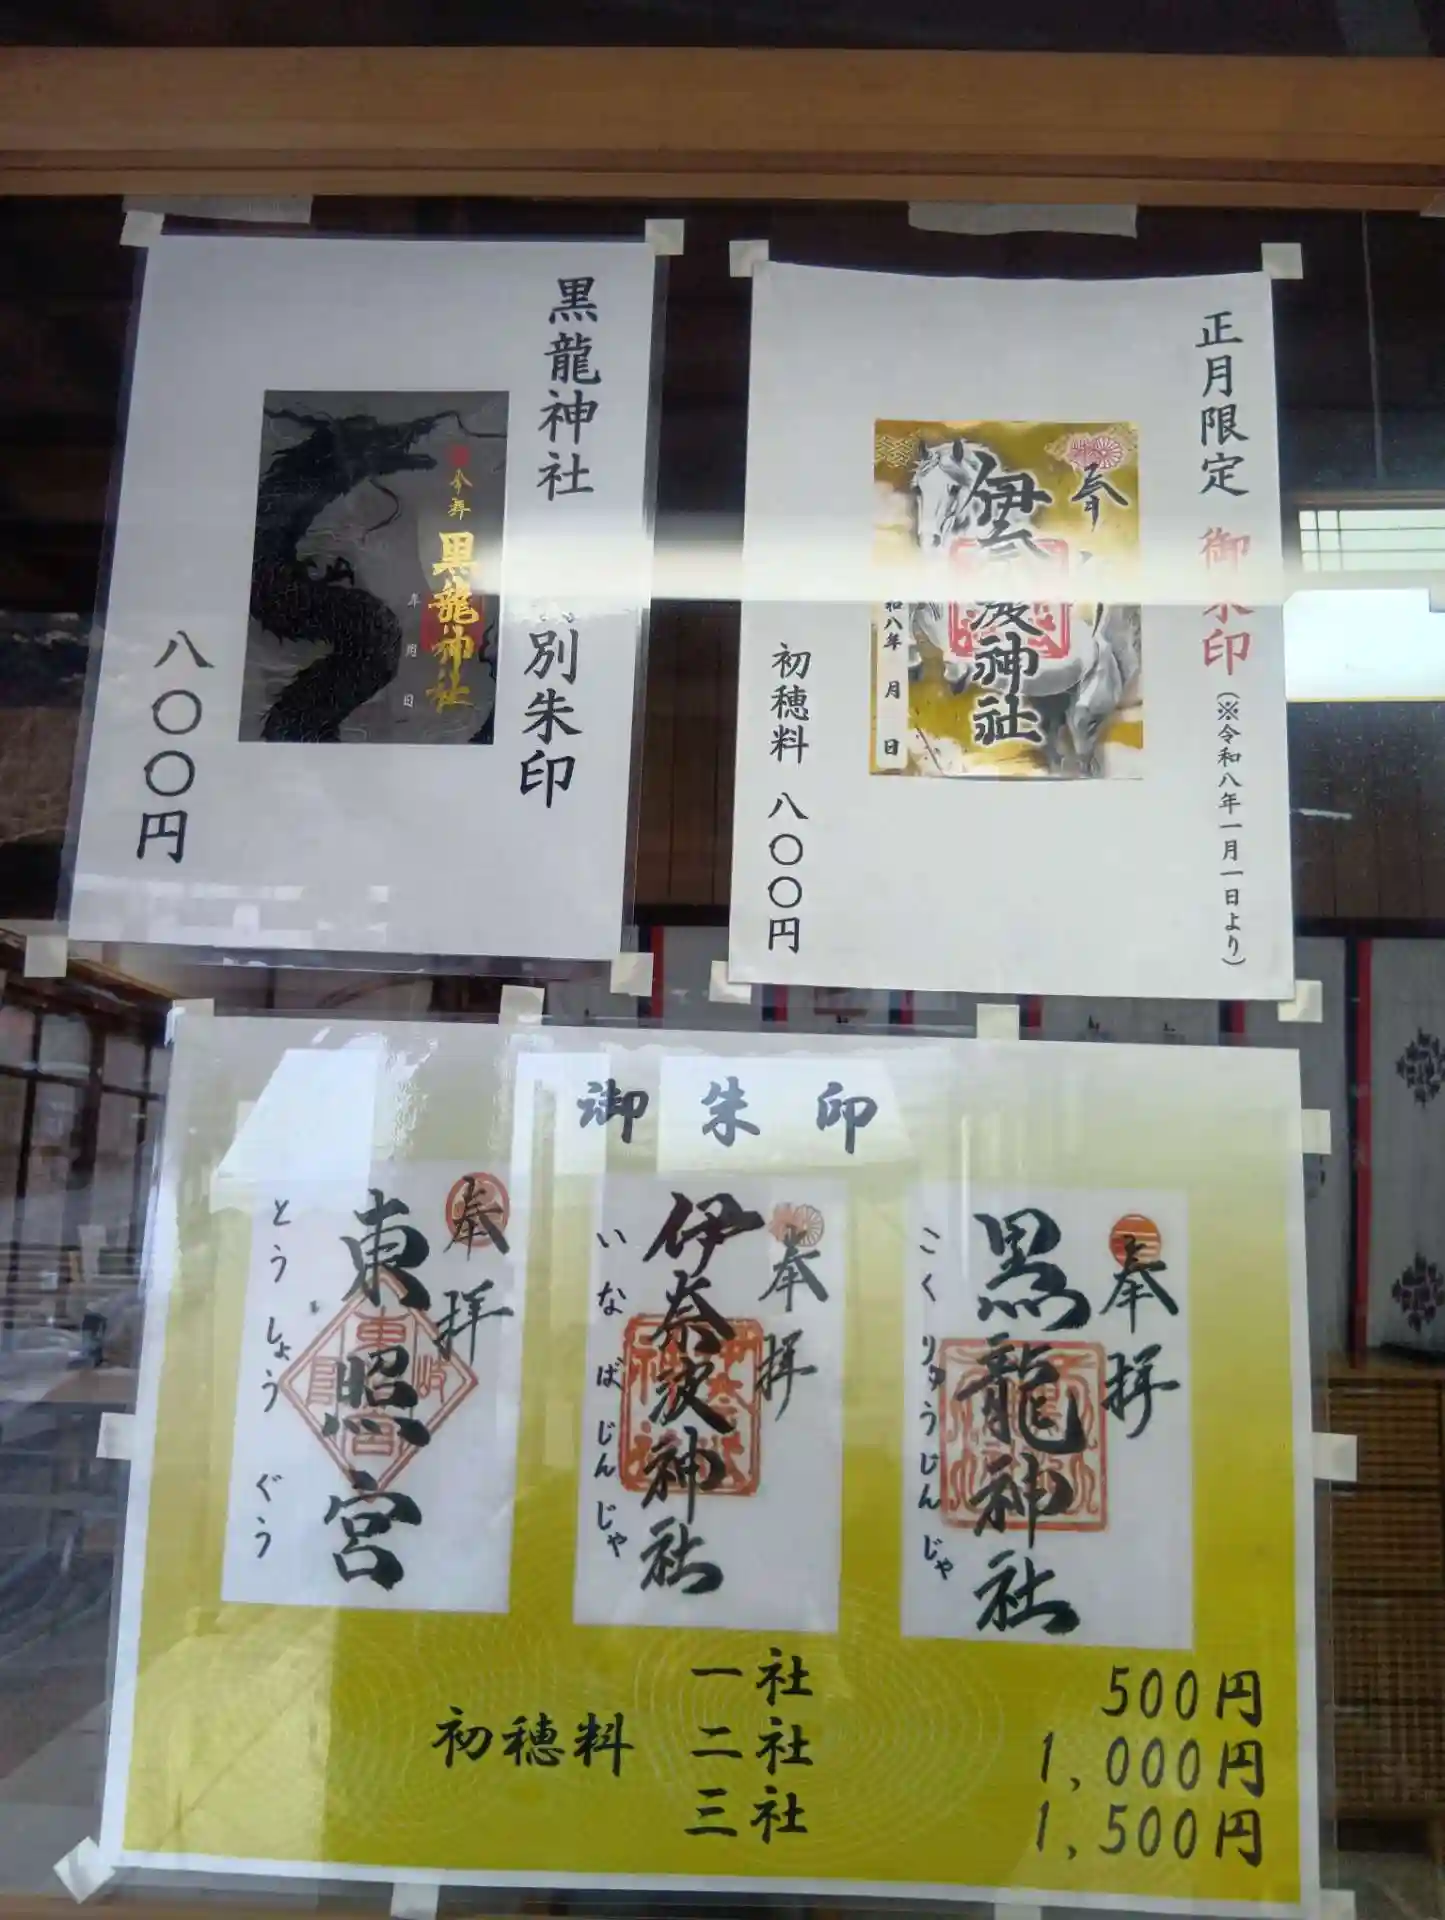 黒龍神社
別朱印
奉拝
黒龍神社
年 月 日
八〇〇円
正月限定 御朱印(※令和八年一月一日より)
奉
伊奈波神社
和八年 月 日
初穂料 八〇〇円
御朱印
奉拝
黒龍神社
こくりゅうじんじゃ
奉拝
伊奈波神社
いなばじんじゃ
奉拝
東照宮
とうしょうぐう
初穂料
一社 500円
二社 1,000円
三社 1,500円